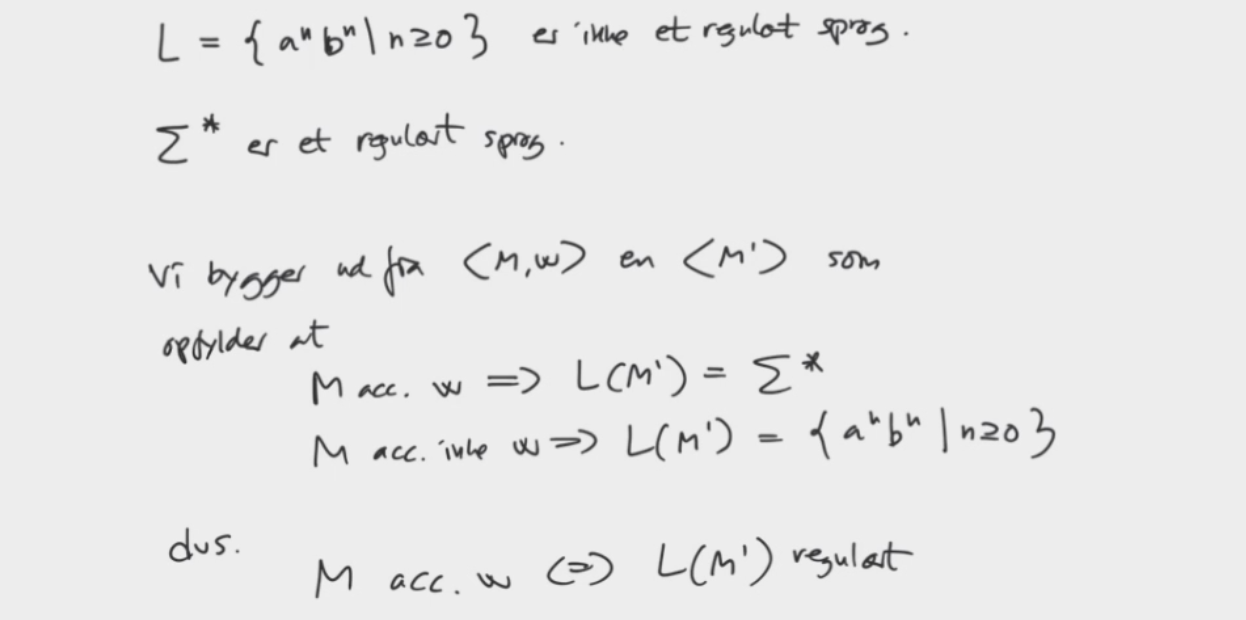 L = { aⁿ bⁿ | n ≥ 0 } er ikke et regulært sprog.
Σ* er et regulært sprog.
Vi bygger ud fra <M,w> en <M'> som
opfylder at
M acc. w => L(M') = Σ*
M acc. ikke w => L(M') = { aⁿ bⁿ | n ≥ 0 }
dvs.
M acc. w <=> L(M') regulært